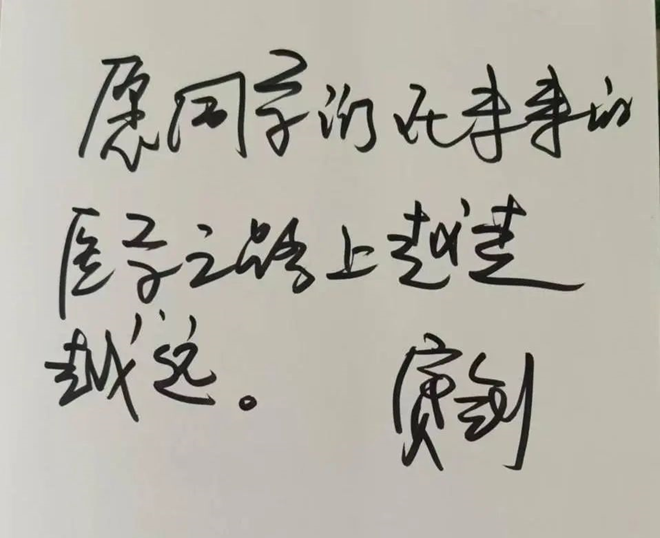 愿同学们在未来的
医学之路上越走
越远。